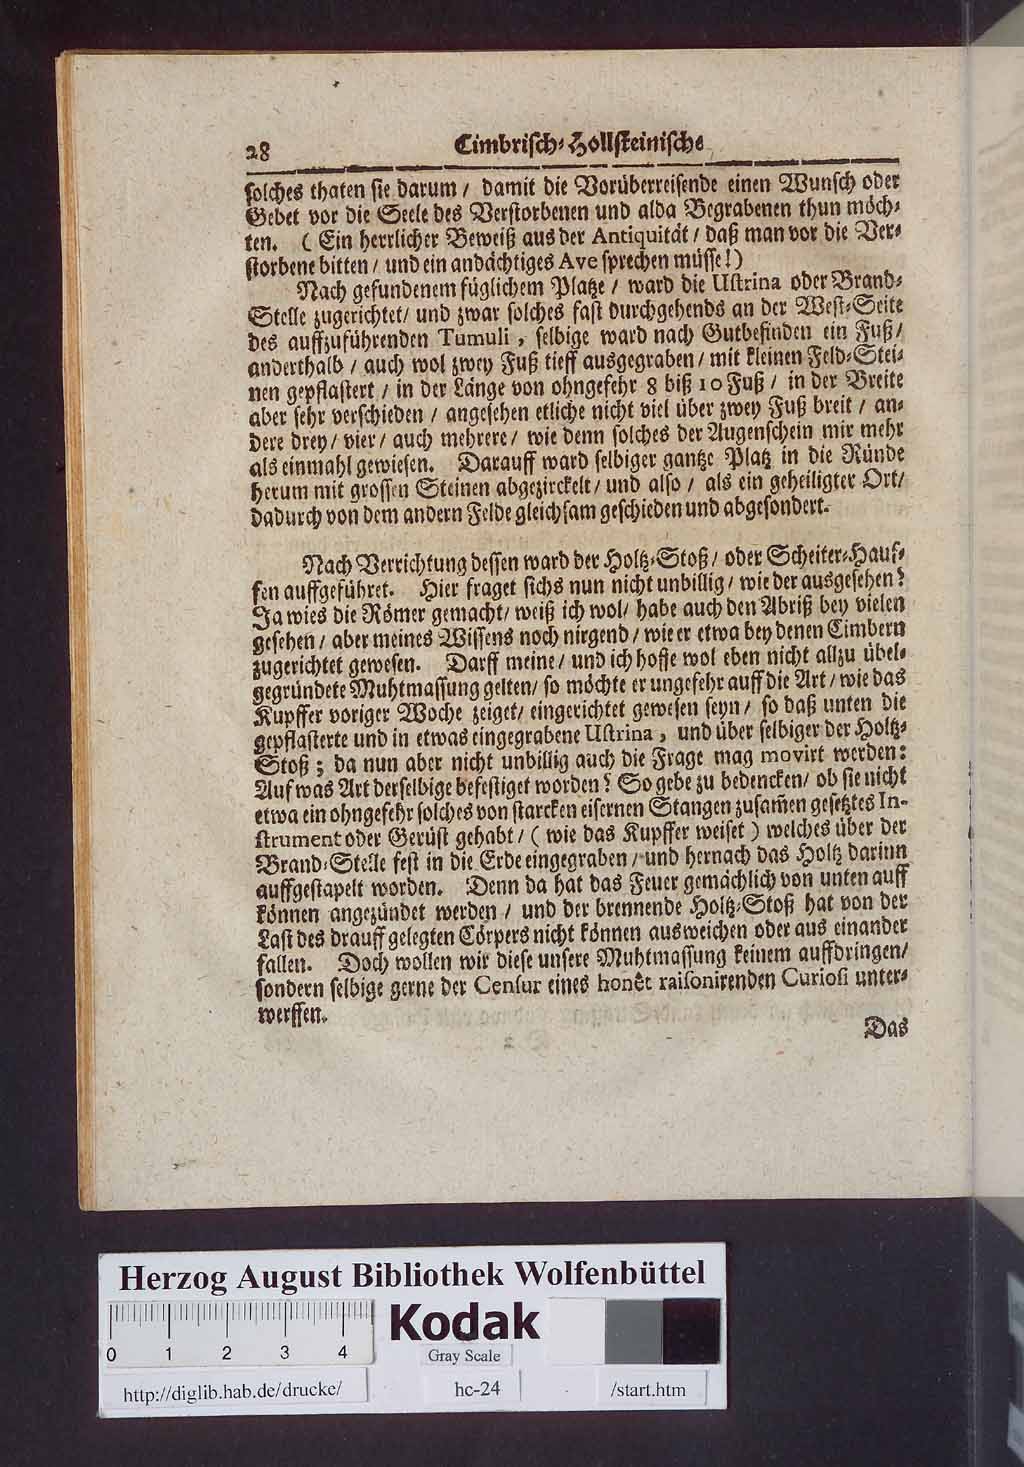 28 Cimbrisch-Hollsteinische
solches thaten sie darum / damit die Vorüberreisende einen Wunsch oder
Gebet vor die Seele des Verstorbenen und alda Begrabenen thun möch-
ten. ( Ein herrlicher Beweiß aus der Antiquität / daß man vor die Ver-
storbene bitten / und ein andächtiges Ave sprechen müsse!)
Nach gefundenem füglichem Platze / ward die Ustrina oder Brand-
Stelle zugerichtet/ und zwar solches fast durchgehends an der West-Seite
des auffzuführenden Tumuli, selbige ward nach Gutbefinden ein Fuß/
anderthalb / auch wol zwey Fuß tieff ausgegraben / mit kleinen Feld-Stei-
nen gepflastert / in der Länge von ohngefehr 8 biß 10 Fuß / in der Breite
aber sehr verschieden / angesehen etliche nicht viel über zwey Fuß breit / an-
dere drey / vier / auch mehrere / wie denn solches der Augenschein mir mehr
als einmahl gewiesen. Darauff ward selbiger gantze Platz in die Ründe
herum mit grossen Steinen abgezirckelt / und also / als ein geheiligter Ort/
dadurch von dem andern Felde gleichsam geschieden und abgesondert.
Nach Verrichtung dessen ward der Holtz-Stoß / oder Scheiter-Hauf-
fen auffgeführet. Hier fraget sichs nun nicht unbillig / wie der ausgesehen?
Ja wies die Römer gemacht/ weiß ich wol/ habe auch den Abriß bey vielen
gesehen / aber meines Wissens noch nirgend / wie er etwa bey denen Cimbern
zugerichtet gewesen. Darff meine / und ich hoffe wol eben nicht allzu übel-
gegründete Muhtmassung gelten / so möchte er ungefehr auff die Art / wie das
Kupffer voriger Woche zeiget / eingerichtet gewesen seyn / so daß unten die
gepflasterte und in etwas eingegrabene Ustrina, und über selbiger der Holtz-
Stoß; da nun aber nicht unbillig auch die Frage mag movirt werden:
Auf was Art derselbige befestiget worden? So gebe zu bedencken / ob sie nicht
etwa ein ohngefehr solches von starcken eisernen Stangen zusam̃en gesetztes In-
strument oder Gerüst gehabt / ( wie das Kupffer weiset ) welches über der
Brand-Stelle fest in die Erde eingegraben / und hernach das Holtz darinn
auffgestapelt worden. Denn da hat das Feuer gemächlich von unten auff
können angezündet werden / und der brennende Holtz-Stoß hat von der
Last des drauff gelegten Cörpers nicht können ausweichen oder aus einander
fallen. Doch wollen wir diese unsere Muhtmassung keinem auffdringen/
sondern selbige gerne der Censur eines honêt raisonirenden Curiosi unter-
werffen.
Das
Herzog August Bibliothek Wolfenbüttel
0 1 2 3 4
Kodak
Gray Scale
http://diglib.hab.de/drucke/ hc-24 /start.htm